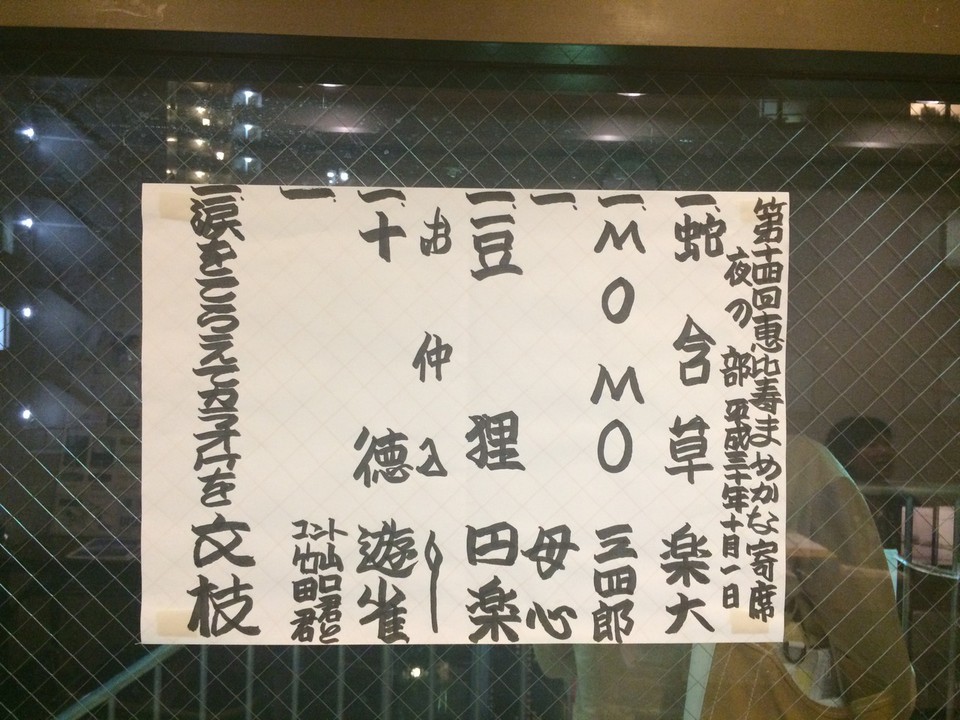 第十四回恵比寿まめかな寄席
夜の部 平成三十年十月一日
一、蛇含草 楽大
一、MOMO 三四郎
一、 母心
一、二豆狸 円楽
お仲入り
一、十徳 遊雀
一、 コント山口君と竹田君
一、涙をこらえてカラオケを 文枝